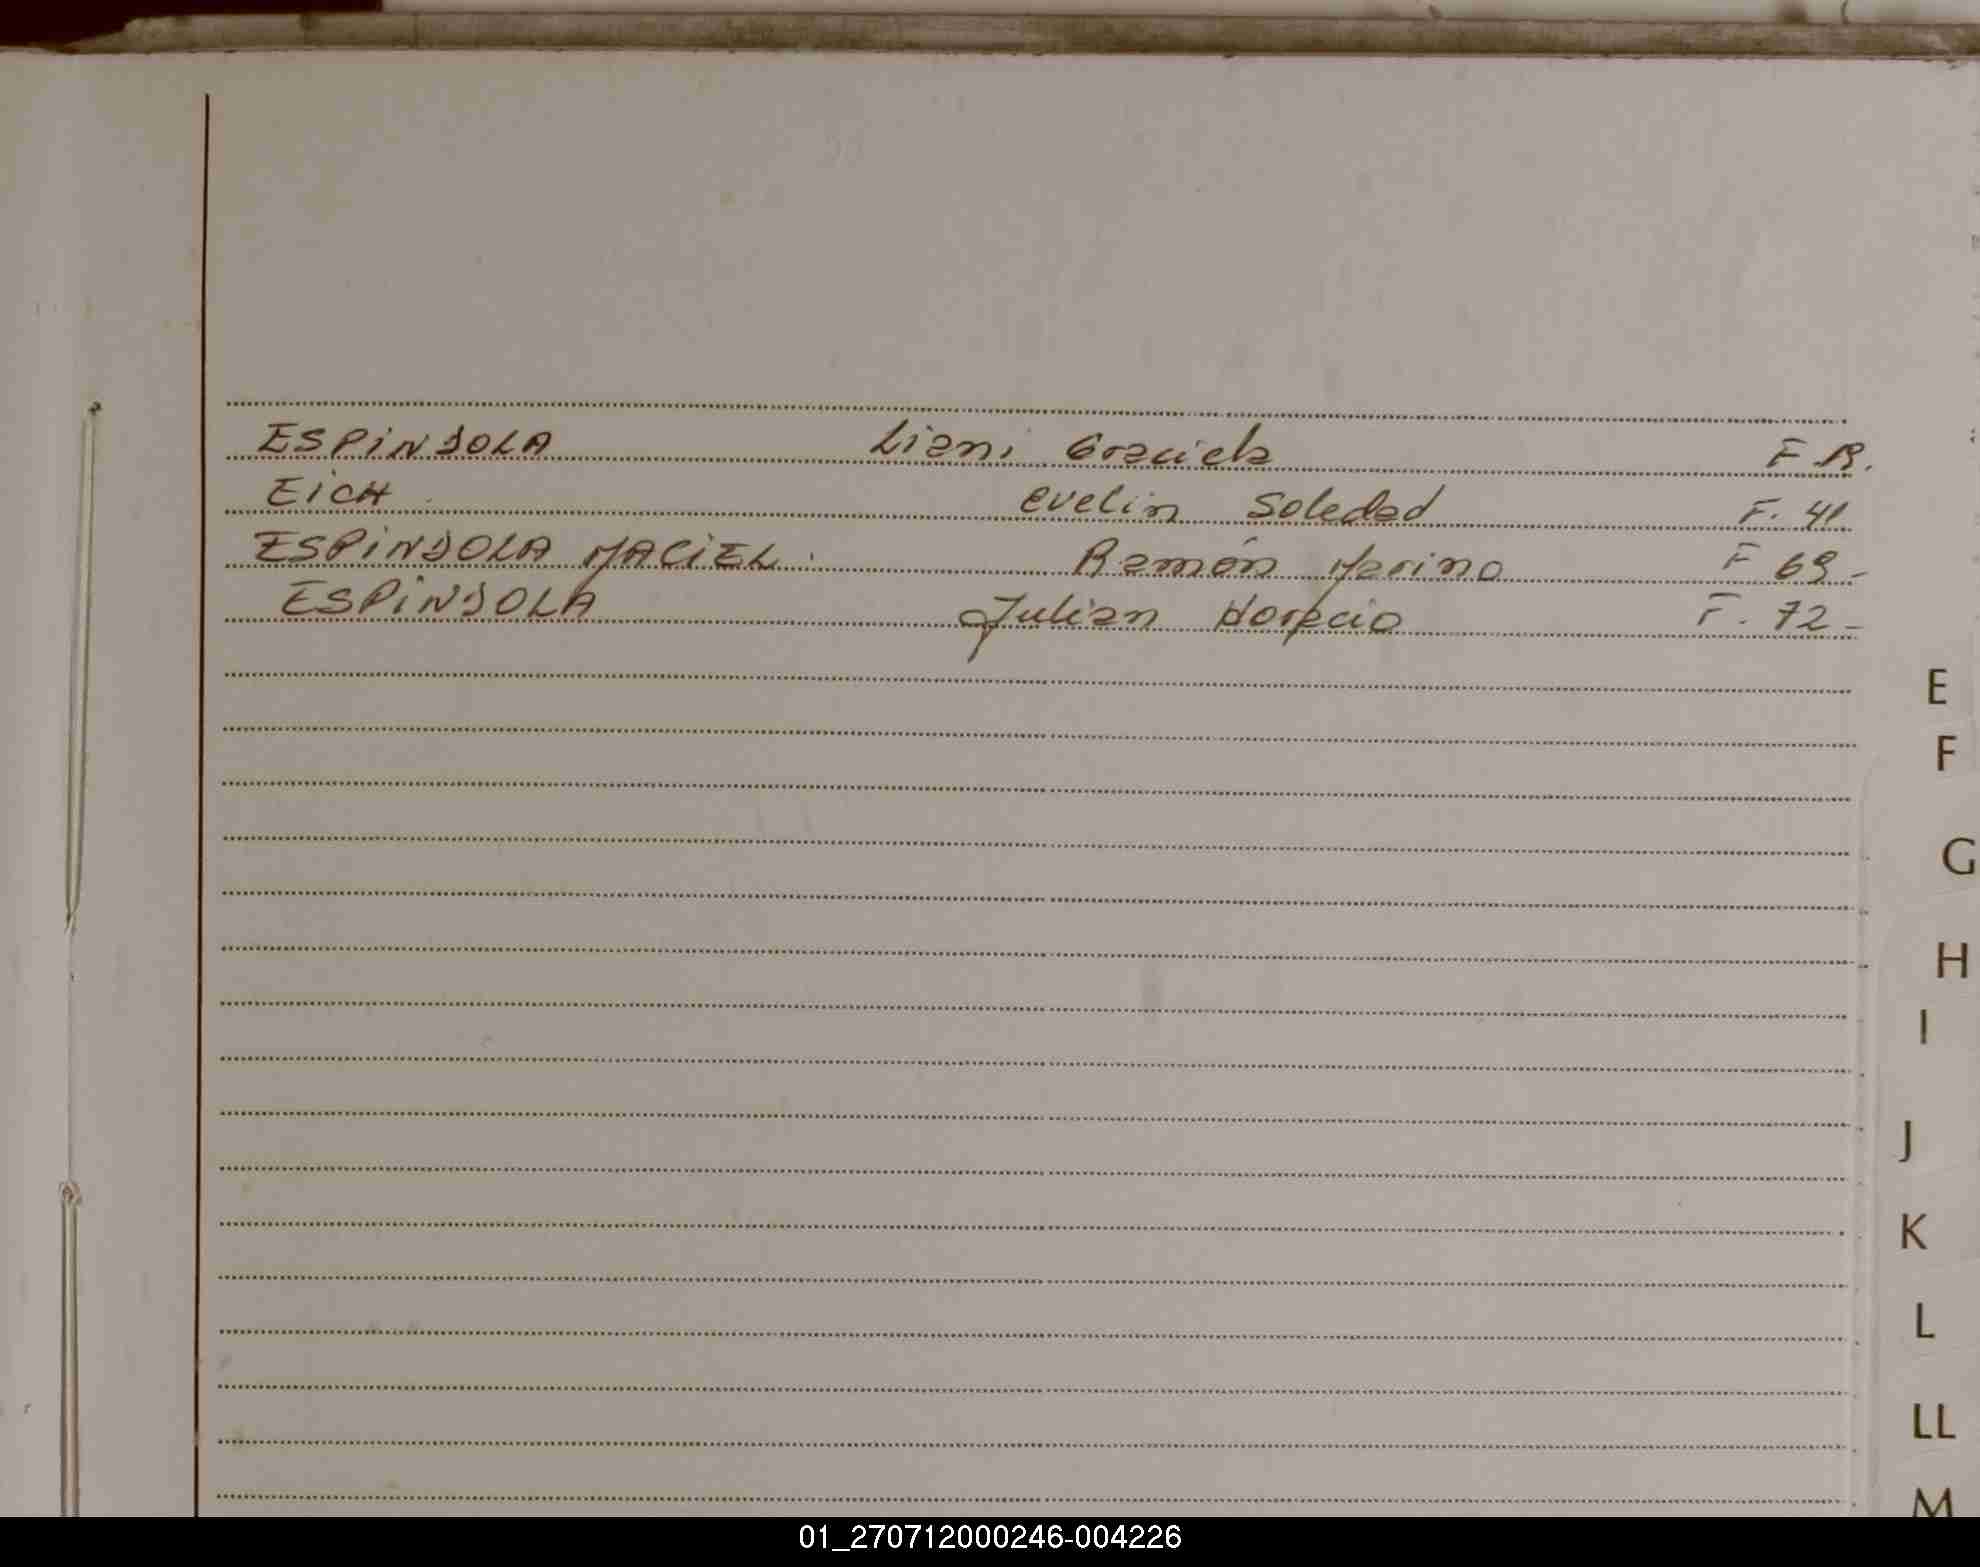 ESPINDOLA Liani Graciela F.
EICH Evelin Soledad F. 41
ESPINDOLA MACIEL. Ramón Marino F 69-
ESPINDOLA Julian Horacio F. 72-
E
F
G
H
I
J
K
L
LL
M
01_270712000246-004226